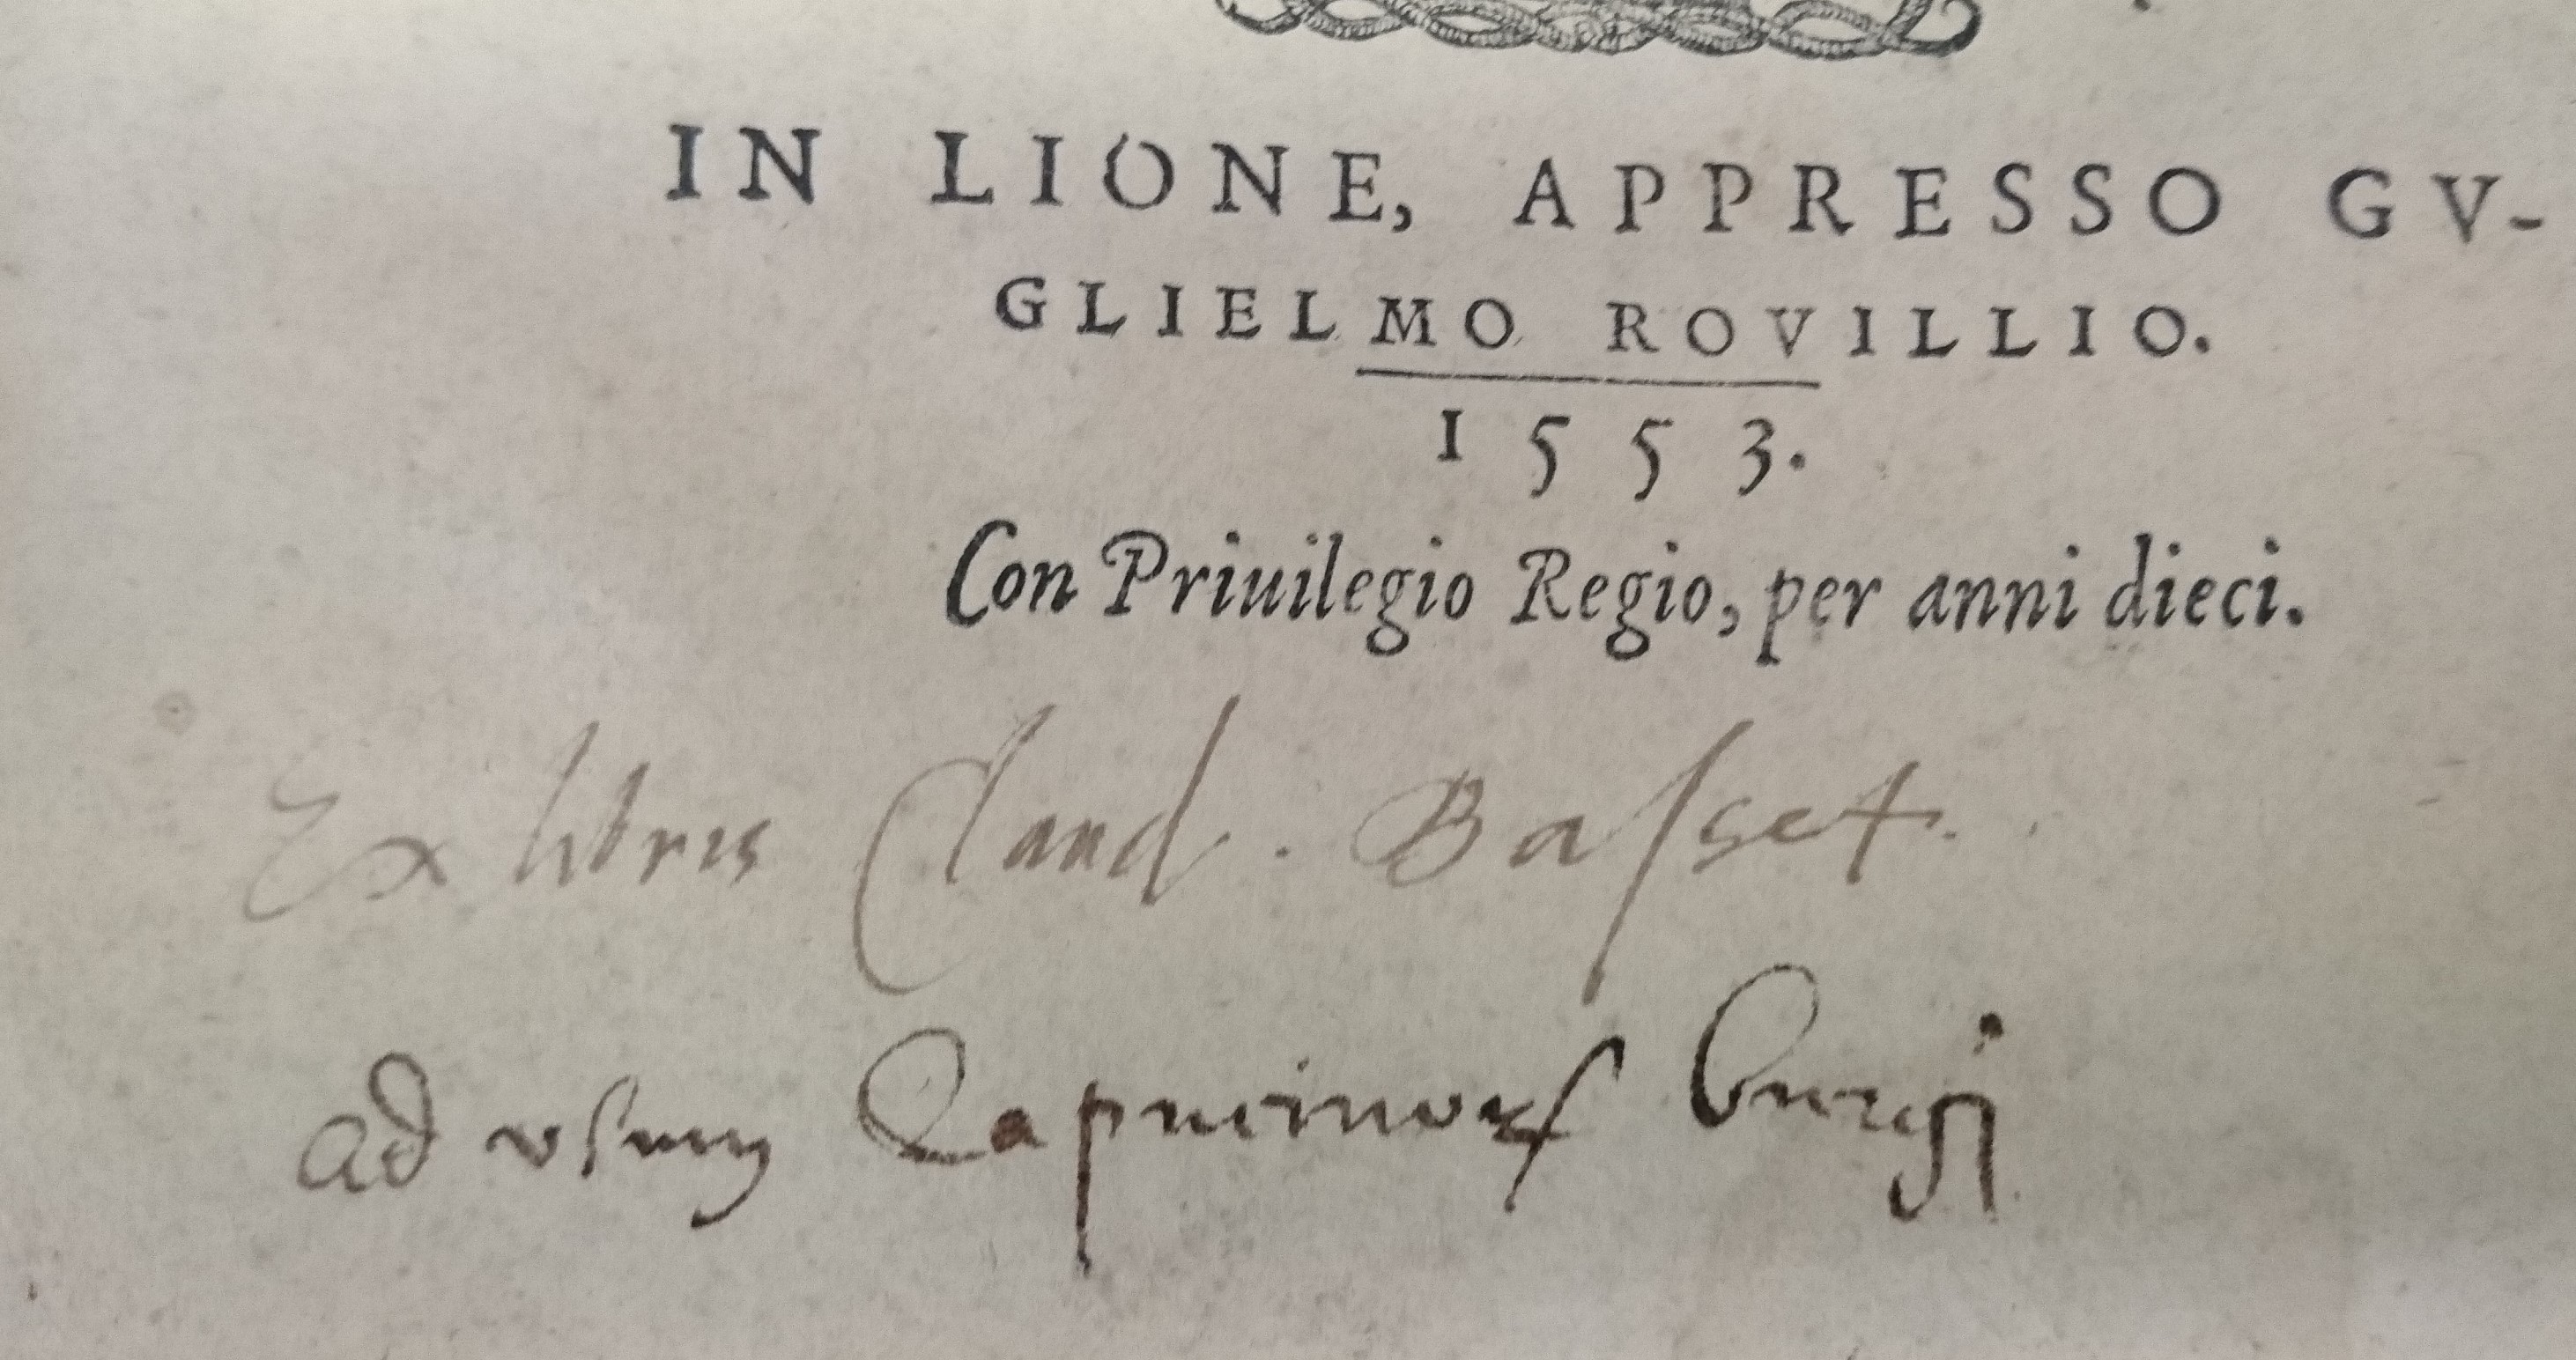 IN LIONE, APPRESSO GV-
GLIELMO ROVILLIO.
1553.
Con Priuilegio Regio, per anni dieci.
Ex libris Claud. Baſset.
ad vſum Capucinorꝝ